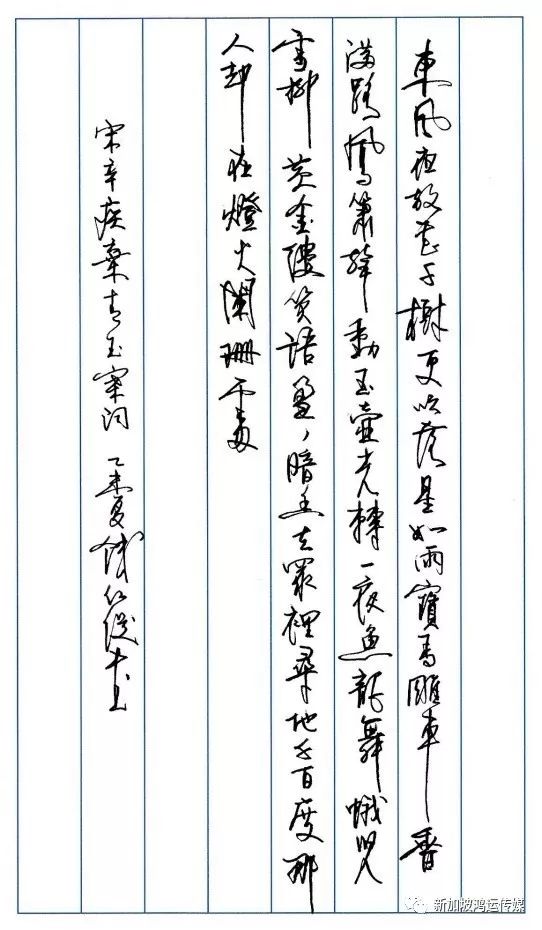 東風夜放花千樹更吹落星如雨寶馬雕車香
滿路鳳簫聲動玉壺光轉一夜魚龍舞蛾兒
雪柳黄金縷笑語盈丶暗香去眾裡尋他千百度那
人却在燈火闌珊處
宋辛疾棄青玉案词 乙未夏 书
新加坡鸿运传媒